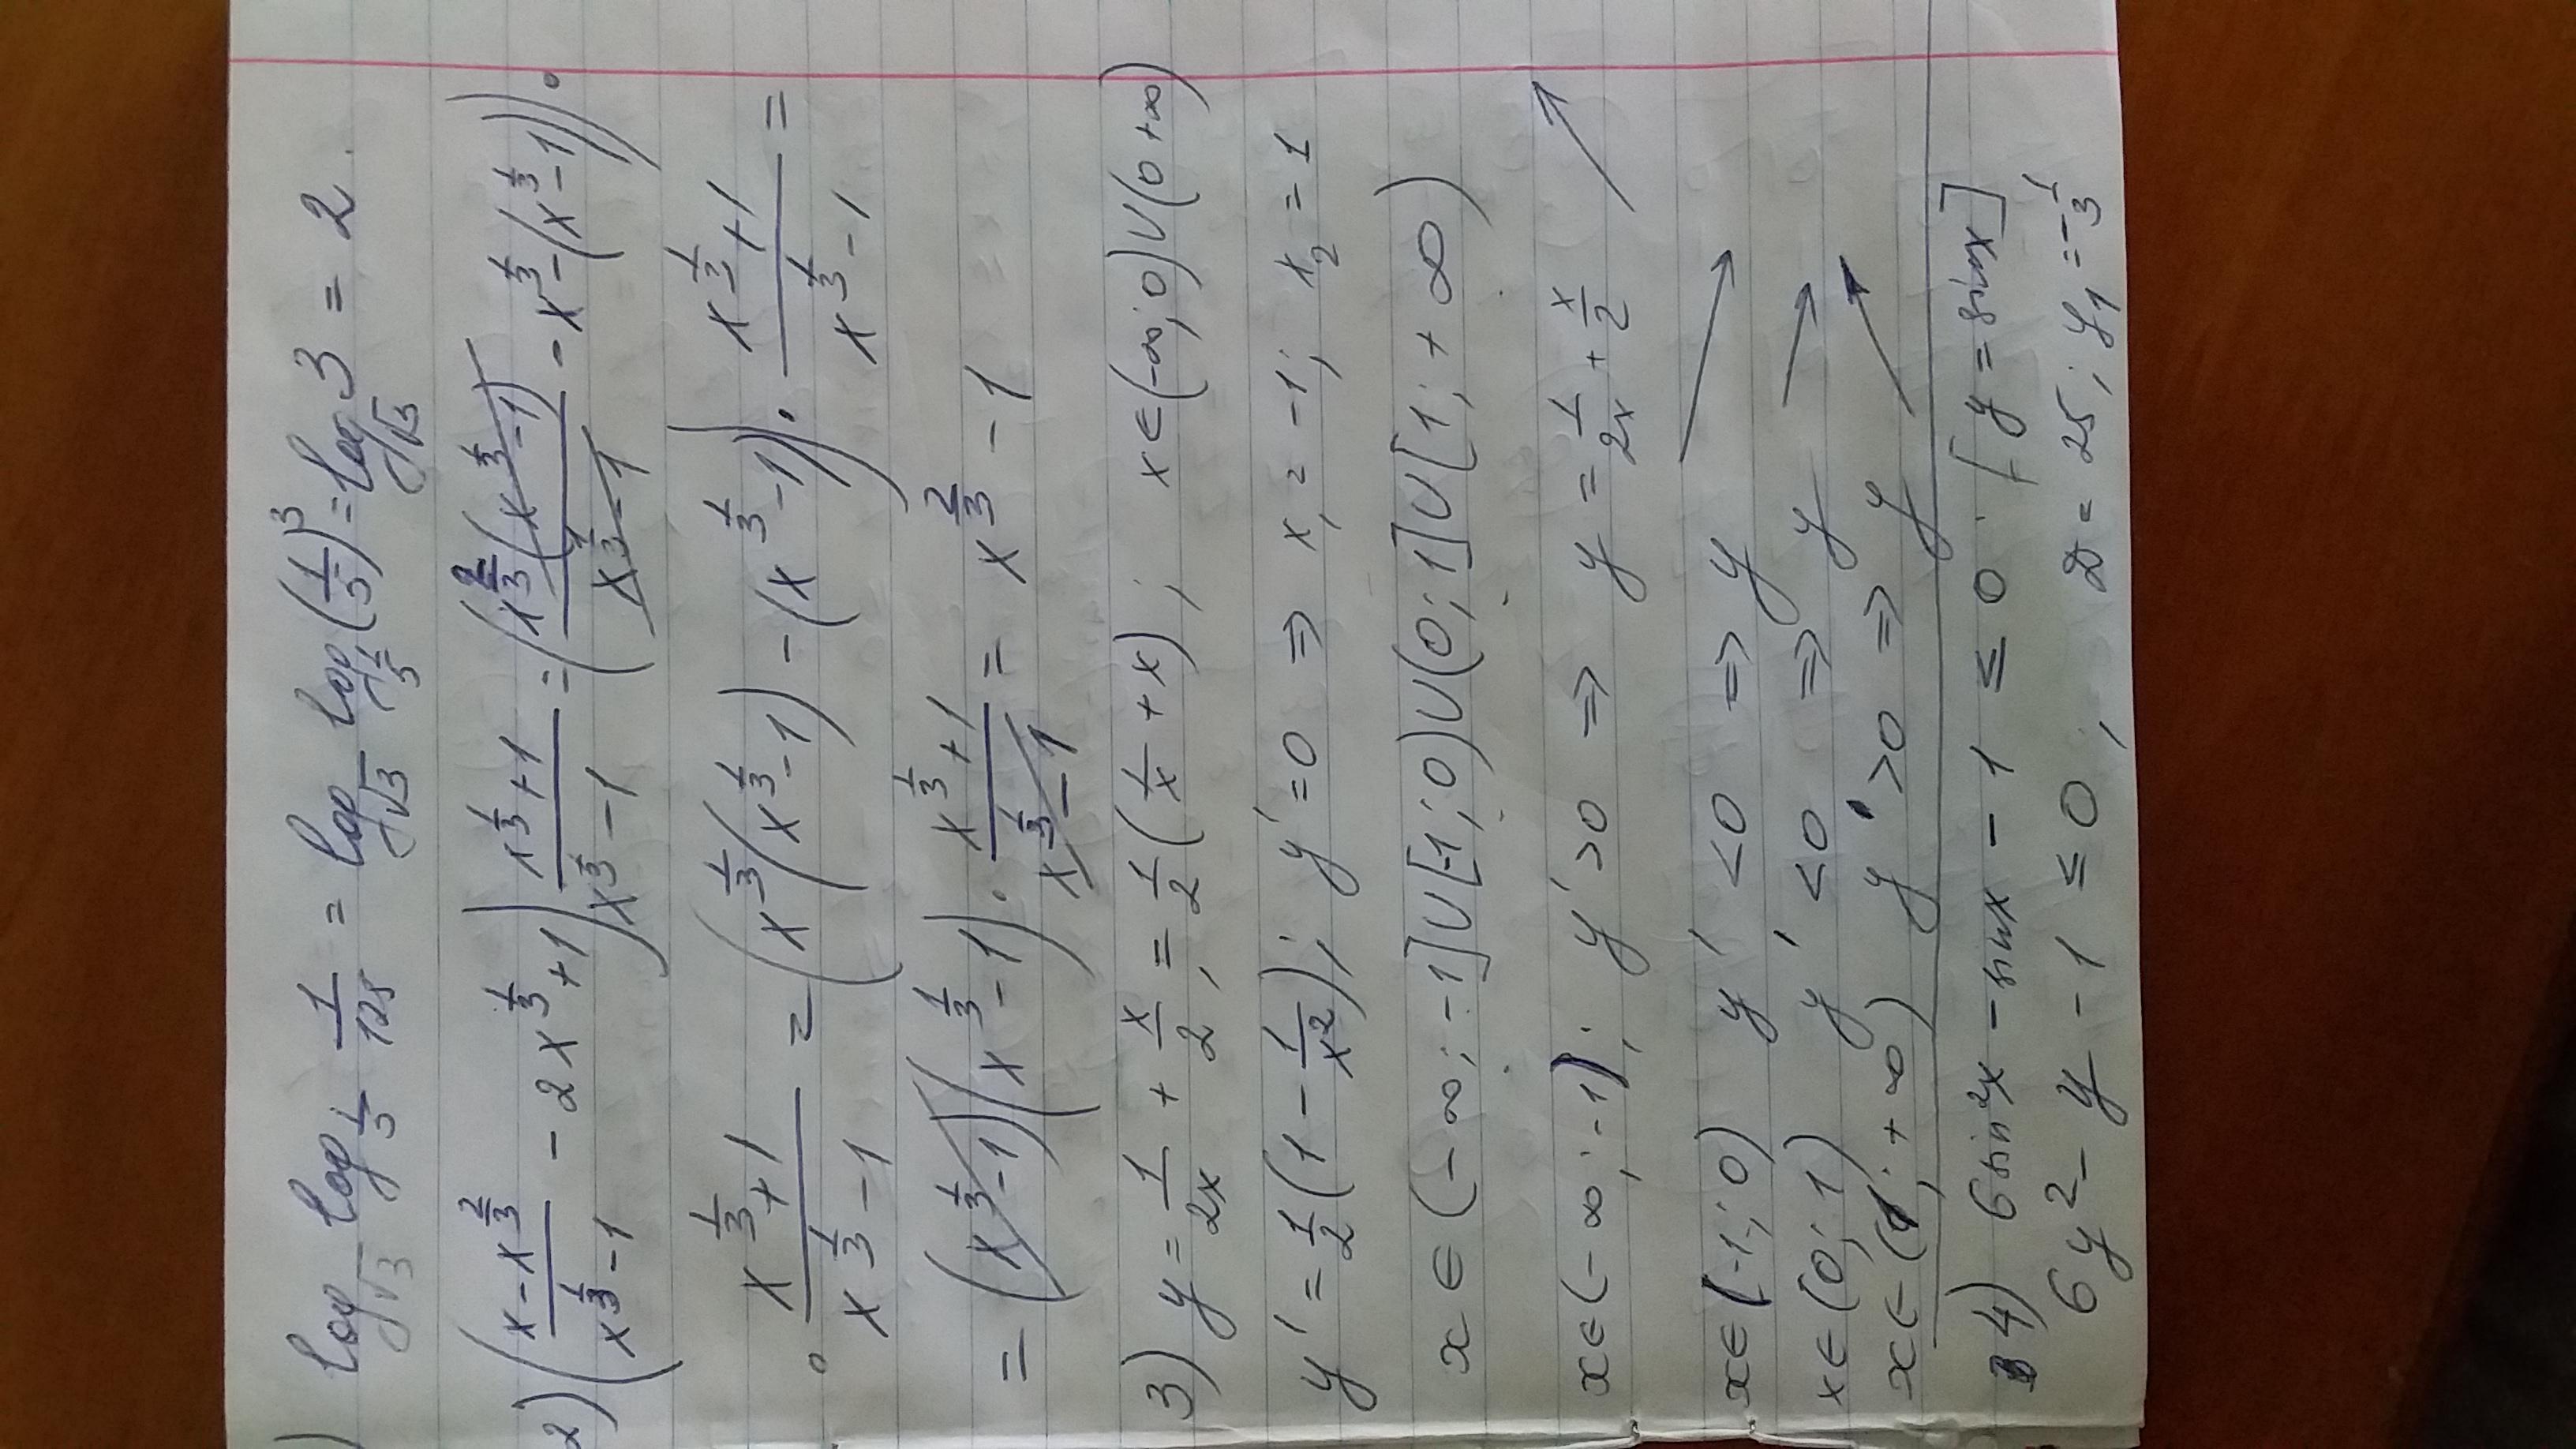 ) log_√3 log_1/5 1/125 = log_√3 log_1/5 (1/5)^3 = log_√3 3 = 2.
2) ((x - x^2/3)/(x^1/3 - 1) - 2x^1/3 + 1) (x^1/3 + 1)/(x^1/3 - 1) = (x^2/3 (x^1/3 - 1)/(x^1/3 - 1) - x^1/3 - (x^1/3 - 1)) ·
· (x^1/3 + 1)/(x^1/3 - 1) = (x^1/3 (x^1/3 - 1) - (x^1/3 - 1)) · (x^1/3 + 1)/(x^1/3 - 1) =
= (x^1/3 - 1)(x^1/3 - 1) · (x^1/3 + 1)/(x^1/3 - 1) = x^2/3 - 1
3) y = 1/2x + x/2, = 1/2 (1/x + x); x ∈ (-∞; 0) ∪ (0 +∞)
y' = 1/2 (1 - 1/x^2); y' = 0 ⇒ x₁ = -1; x₂ = 1
x ∈ (-∞; -1] ∪ [-1; 0) ∪ (0; 1] ∪ [1; +∞)
x ∈ (-∞; -1); y' > 0 ⇒ y = 1/2x + x/2 ↗
x ∈ (-1; 0) y' < 0 ⇒ y ↘
x ∈ (0; 1) y' < 0 ⇒ y ↘
x ∈ (1; +∞) y' > 0 ⇒ y ↗
4) 6 sin²x - sinx - 1 ≤ 0. [y = sinx]
6y² - y - 1 ≤ 0, D = 25; y₁ = -1/3